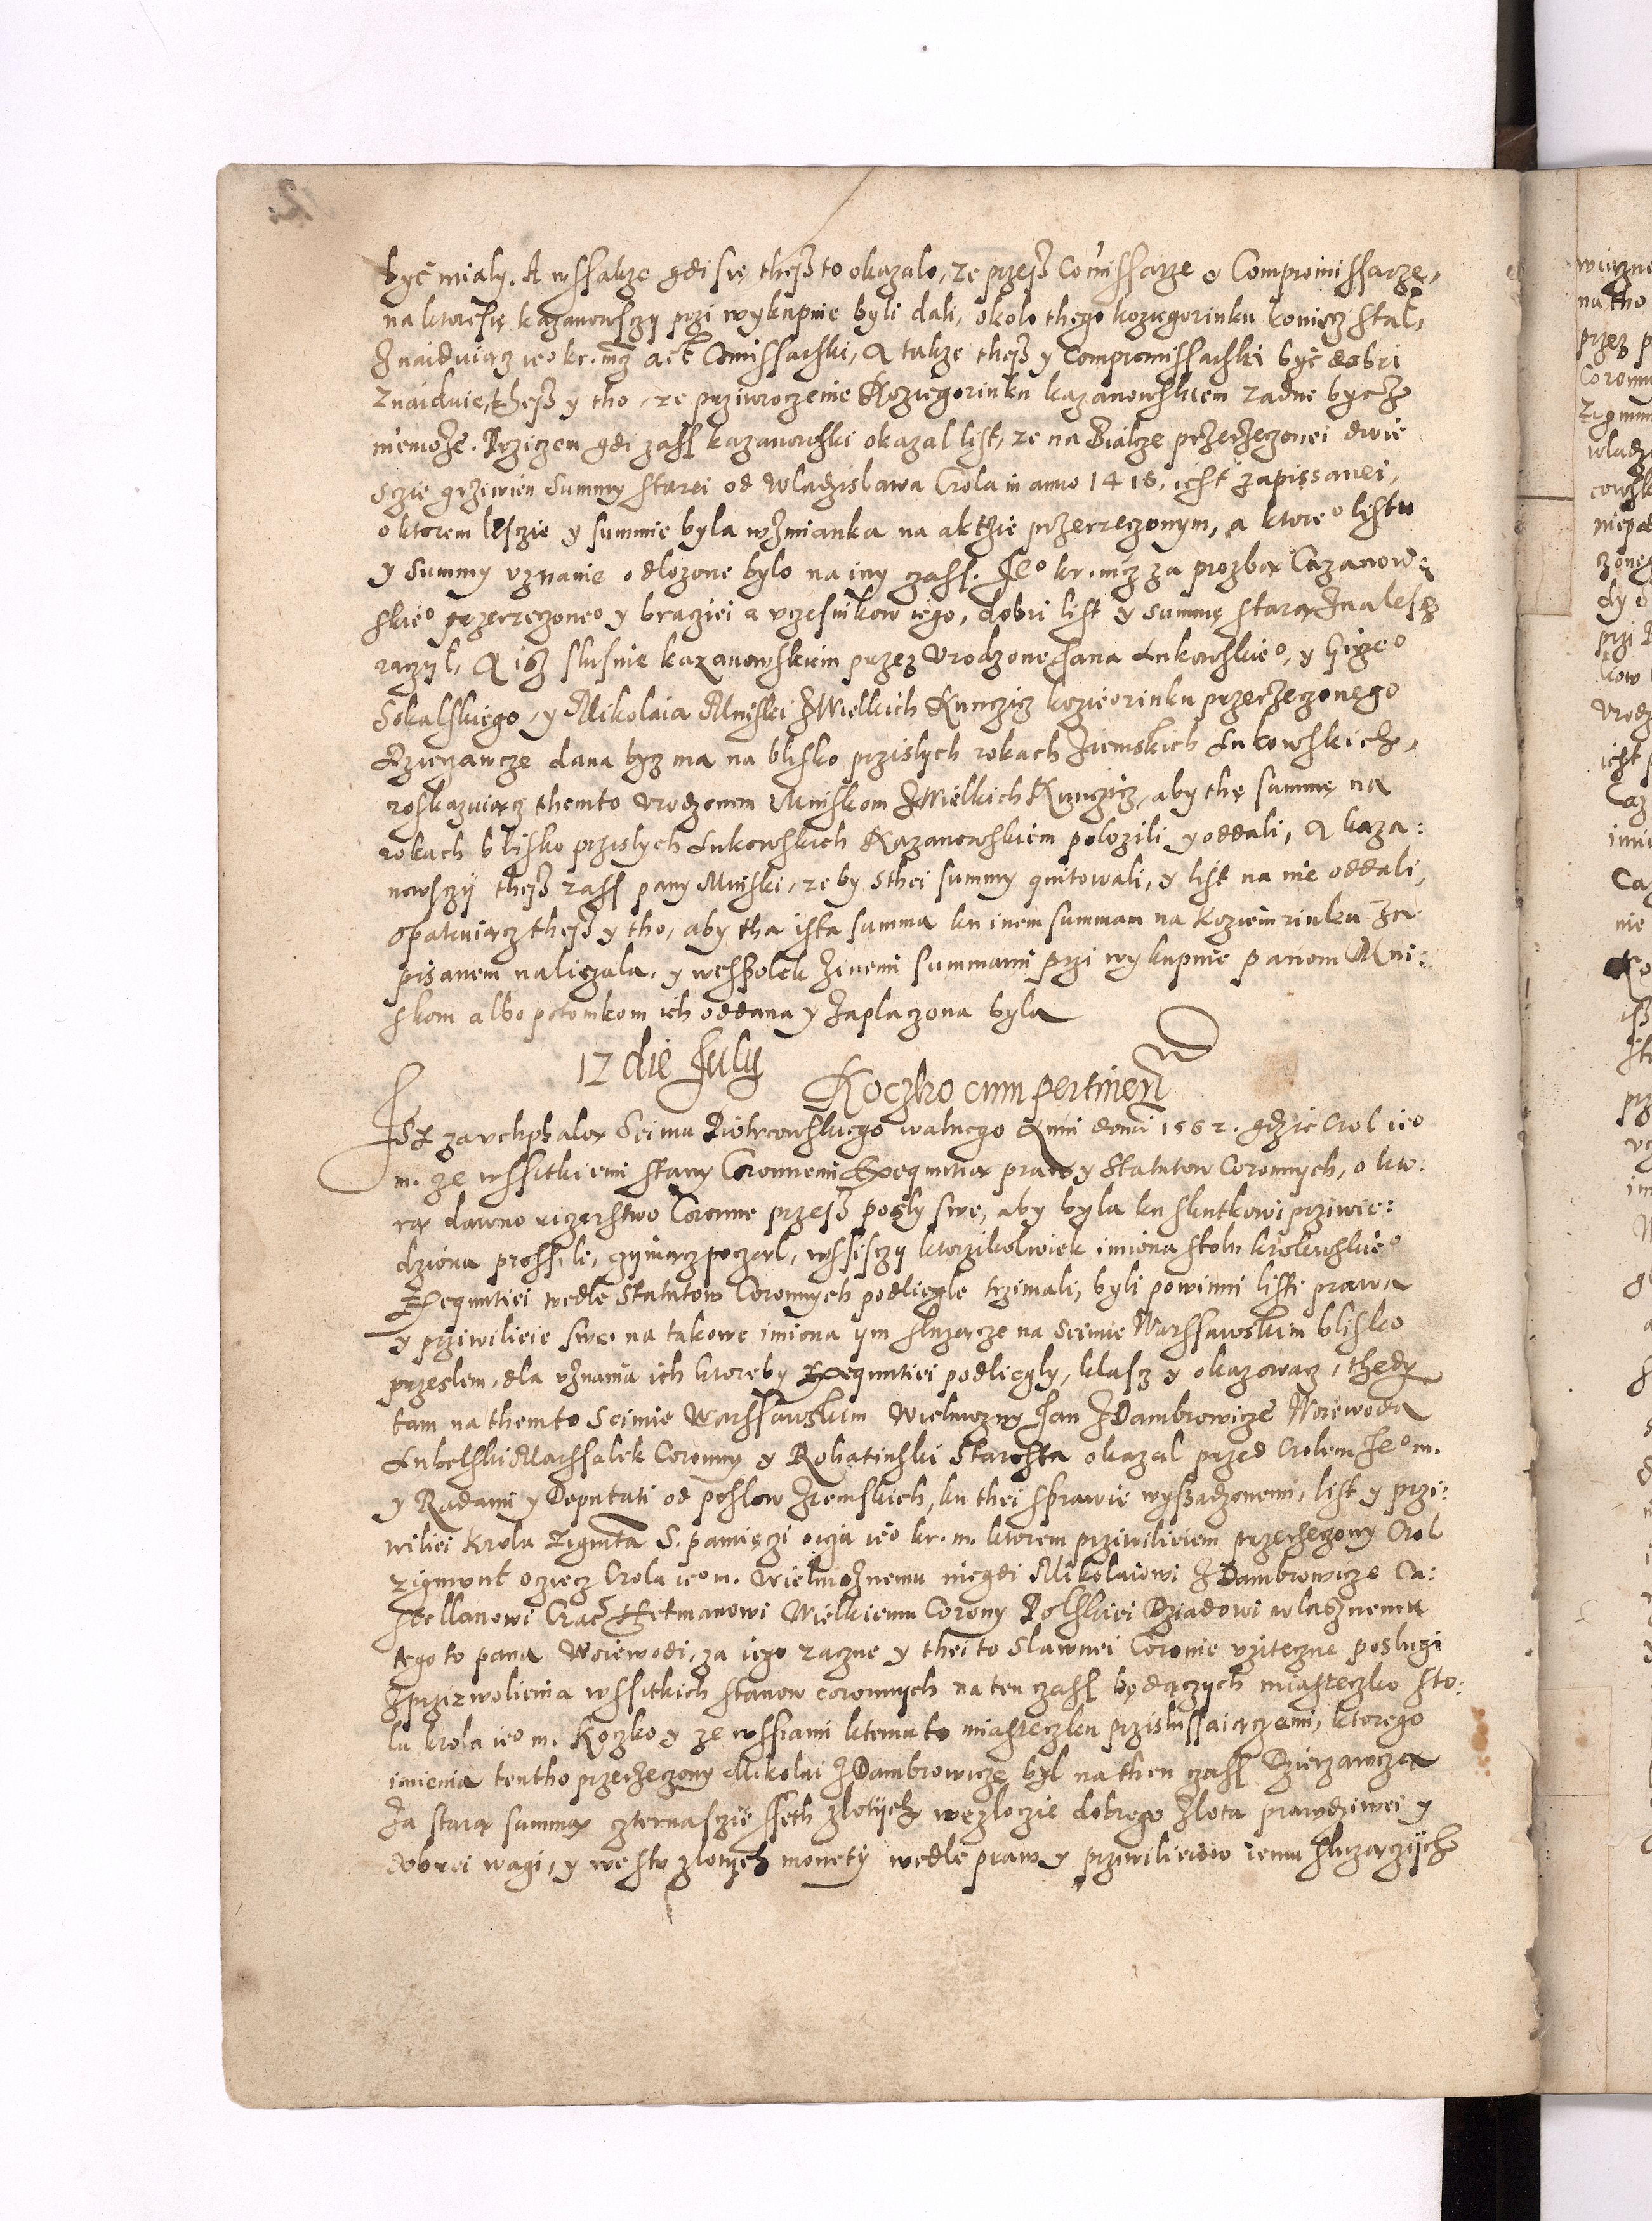 być mialy. A wssakże gdi się thesz to okazalo, ze przesz Comissarze y Compromissarze,
na ktore się kazanowsczy przi wykupnie byli dali, około thego koziegorinku koniecz stal,
Znaiduiącz ieo kr. mcz act Comissarski, A takze thesz y Compromissarski być dobri
znaiduie, thesz y tho, ze przywroczenie Koziegorinku kazanowskiem zadne bycz
niemoże. Przyczem gdi zass kazanowski okazal list, ze na Bialcze przerzeczonei dwie
sczie grziwien Summy starei od Wladzislawa Crola in anno 1418, iest zapissanei,
o ktorem lisczie y summie byla wzmianka na aktzie przerzeczonym, a ktoreo listu
y Summy vznanie odlozone bylo na iny czass. Jeo kr. mcz za prozbą Cazanow
skieo przerzeczoneo y braciei a vczesnikow iego, dobri list y summę starą znalescz
raczyl, A isz slusnie kazanowskiem przez Vrodzone Jana Lukowskieo, y
Sokalskiego, y Mikolaia Mniski z Wielkich Kunczicz koziorinku przerzeczonego
Dzierzawcze dana bycz ma na blisko przislych rokach ziemskich Lukowskich,
roskazuiącz themto Vrodzonem Mniskom z Wielkich Kunczicz, aby thę summę na
rokach blisko przislych Lukowskich Kazanowskiem polozili y oddali, A kaza:
nowsczy thesz zass pany Mniski, ze by sthei summy quitowali, y list na nie oddali,
opatruiącz thesz y tho, aby tha ista summa ku inem summam na koziem rinku za
pisanem nalieżala, y wespolek z inemi summami przi wykupnie panom Mni:
skom albo potomkom ich oddana y zaplaczona byla
17 die July Koczko cum pertinen
Isz za vchwalą Seimu Piotrcowskiego walnego Anni domi 1562. gdzie Crol ieo
m. ze wssitkiemi stany Coronnemi Exequutią praw y Statutow Coronnych, o kto:
rą dawno ricerstwo Coronne przesz posly swe, aby byla ku skutkowi prziwie:
dziona prossili, czynicz poczęl, wssisczy ktorzikolwiek imiona stolu krolewskieo
Exequutiei wedle Statutow Coronnych podliegle trzimali, byli powinni listi prawa
y prziwilieie swe na takowe imiona ym sluzącze na Seimie Warssawskim blisko
przeslem, dla vznania ich ktoreby Exequutiei podliegly, klasz y okazowacz, thedy
tam na themto Seimie Warssawskim Wielmozny Jan z Dambrowicze Woiewoda
Lubelski Marssalek Coronny y Rohatinski Starosta okazal przed Crolem Jeo m.
y Radami y Deputati od poslow ziemskich, ku thei sprawie wysadzonemi, list y przi:
wiliei Krola Zigmta S. pamięczi oicza ieo kr. m. ktorem prziwilieiem przerzeczony Crol
zigmont oczecz Crola ieo m. wielmożnemu niegdi Mikolaiowi z Dambrowicze Ca:
stellanowi Crac Hetmanowi Wielkiemu Corony Polskiei Dziadowi wlasznemu
tego to pana Woiewodi, za iego zaczne y thei to slawnei Coronie vziteczne poslugi
z przizwolienia wssitkich stanow coronnych na ten czass będączych miasteczko sto:
lu krola ieo m. Koczko y ze wssiami ktemu to miasteczku przislussaiączemi, ktorego
imienia tentho przerzeczony Mikolai z Dambrowicze byl na then czass Dzierzawczą
Za starą summą czternasczie seth zlotych we zloczie dobrego zlota prawdziwei y
dobrei wagi, y we sto zlotych monety wedle praw y prziwilieiow iemu sluzączych